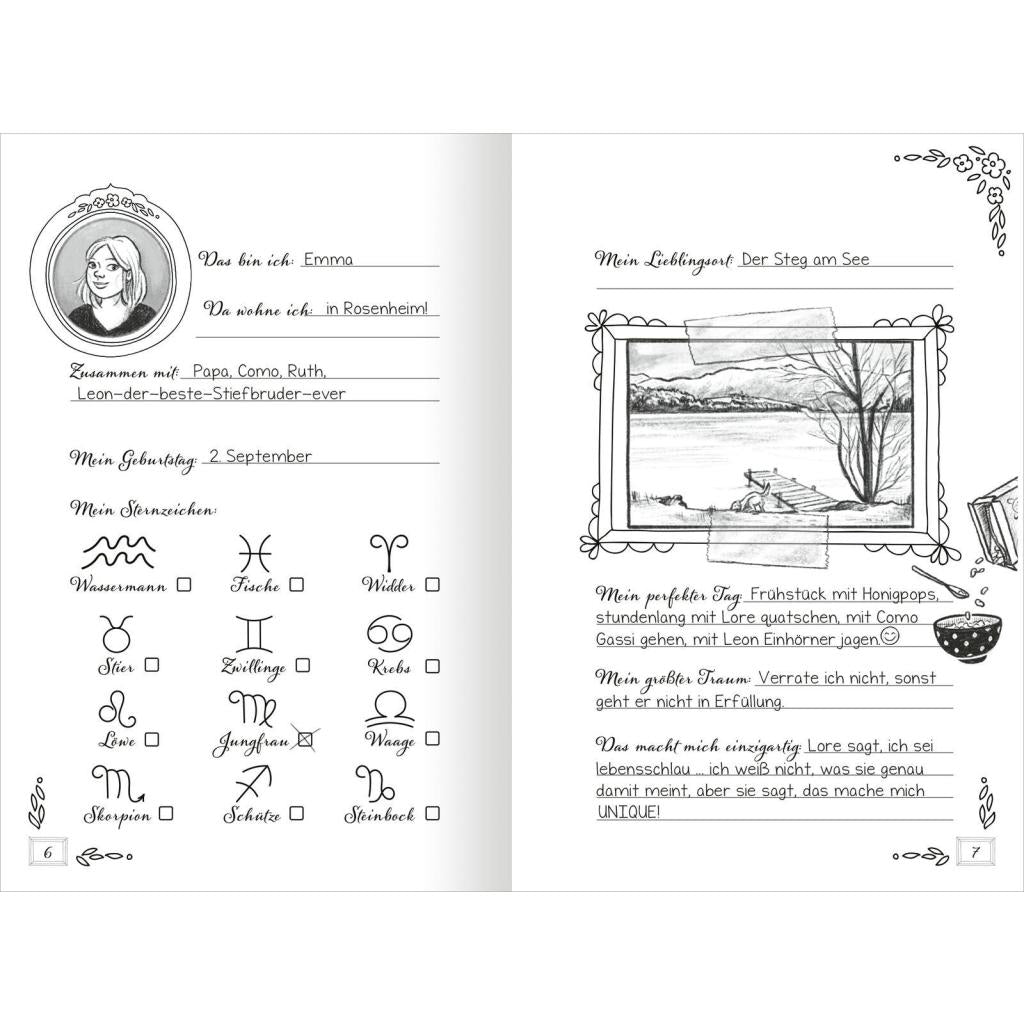 Das bin ich: Emma
Da wohne ich: in Rosenheim!
Zusammen mit: Papa, Como, Ruth,
Leon-der-beste-Stiefbruder-ever
Mein Geburtstag: 2. September
Mein Sternzeichen:
Wassermann Fische Widder
Stier Zwillinge Krebs
Löwe Jungfrau Waage
Skorpion Schütze Steinbock
6
Mein Lieblingsort: Der Steg am See
Mein perfekter Tag: Frühstück mit Honigpops,
stundenlang mit Lore quatschen, mit Como
Gassi gehen, mit Leon Einhörner jagen.☺
Mein größter Traum: Verrate ich nicht, sonst
geht er nicht in Erfüllung.
Das macht mich einzigartig: Lore sagt, ich sei
lebensschlau ... ich weiß nicht, was sie genau
damit meint, aber sie sagt, das mache mich
UNIQUE!
7